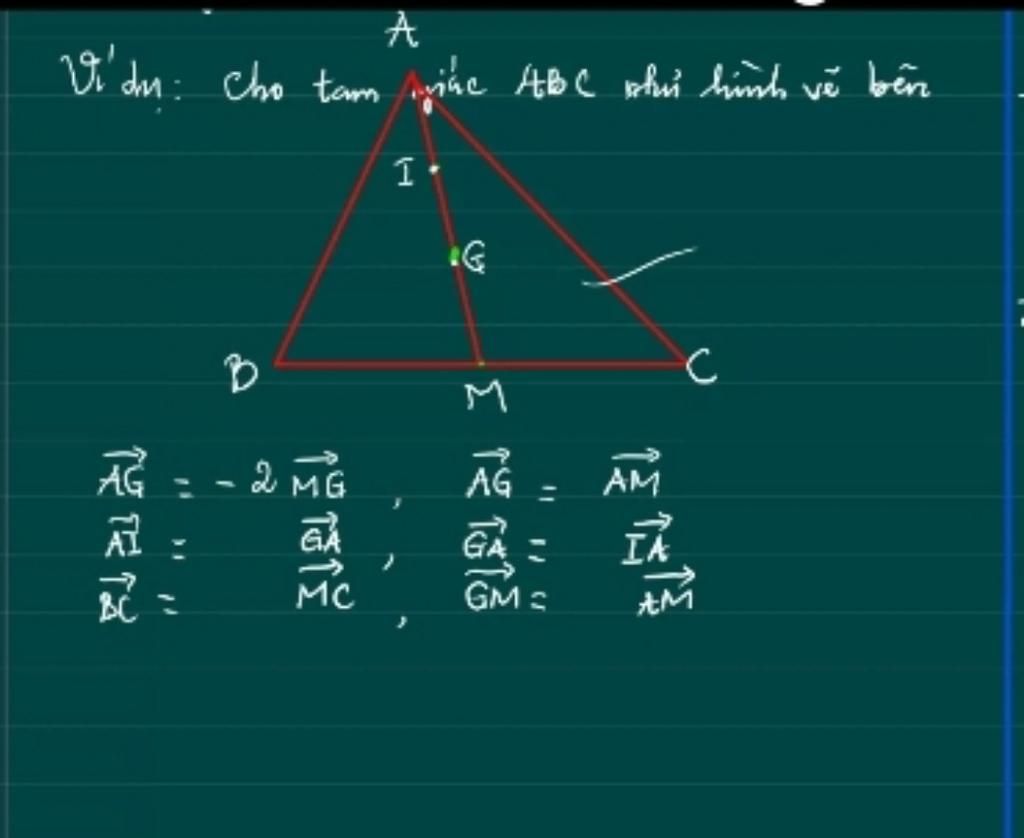 A
Ví dụ: Cho tam giác ABC như hình vẽ bên
I
G
B
M
C
AG = - 2 MG , AG = AM
AI = GA , GA = IA
BC = MC , GM = AM